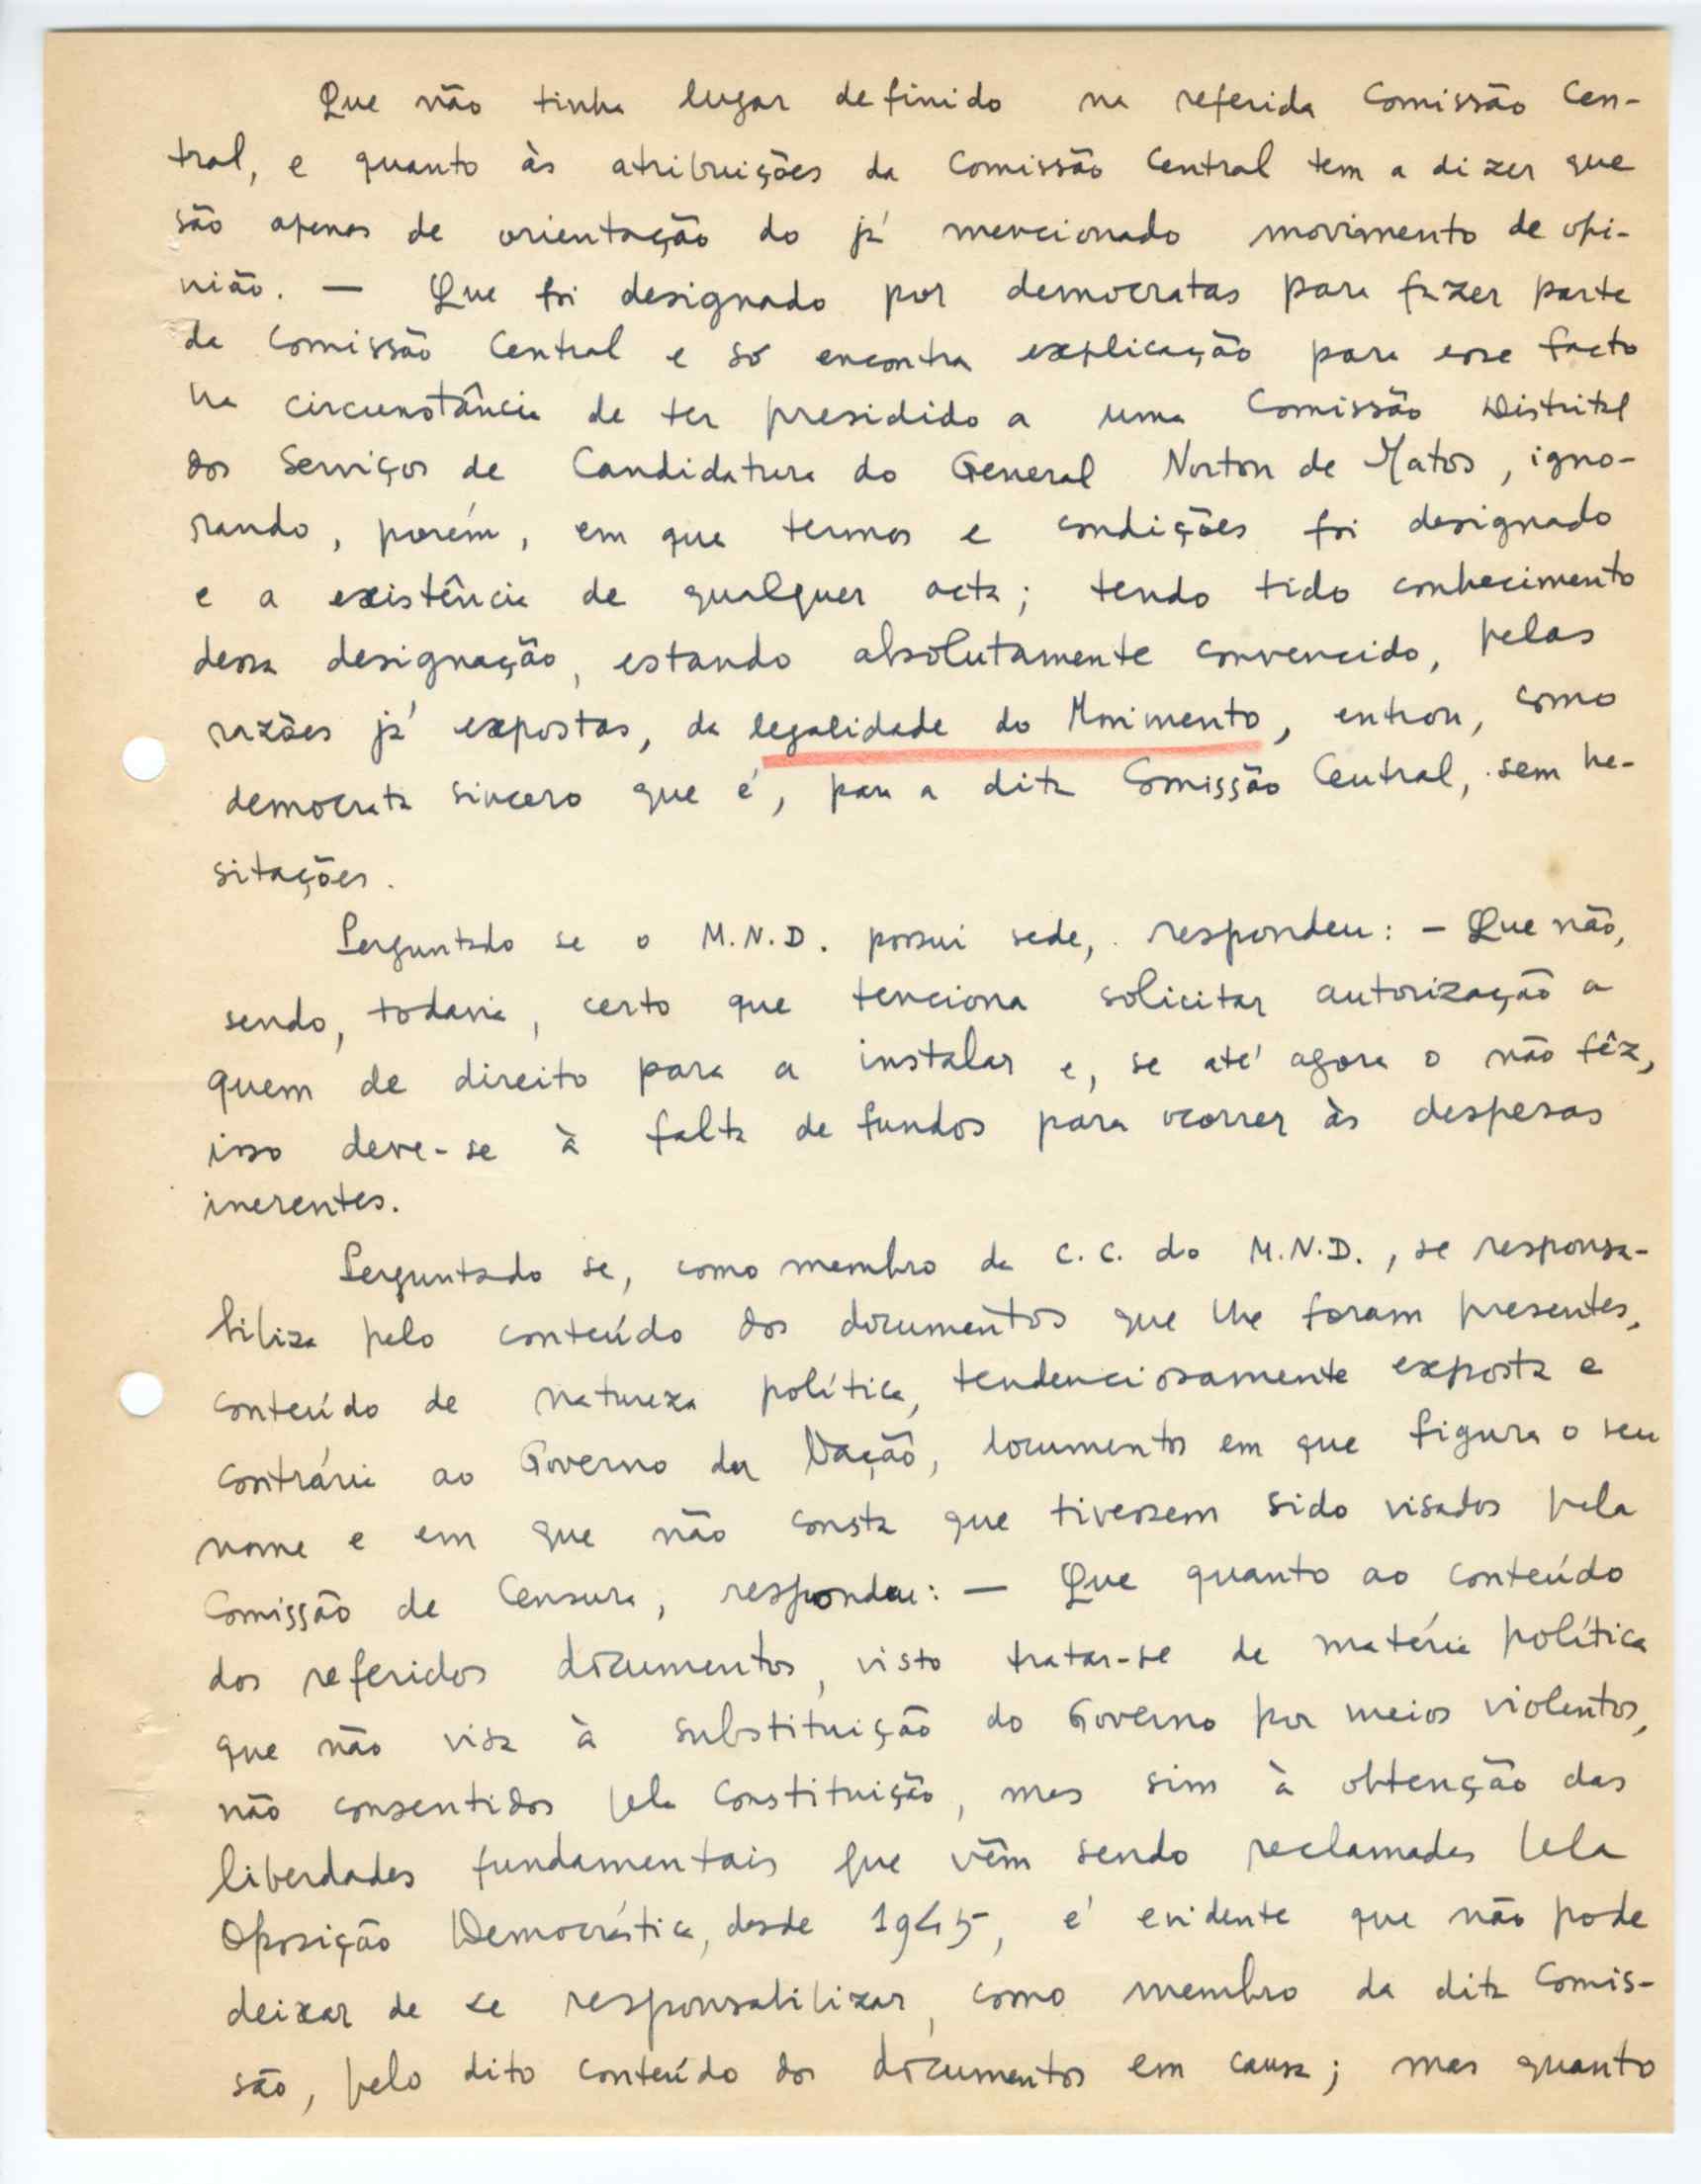 Que não tinha lugar definido na referida Comissão Cen-
tral, e quanto às atribuições da Comissão Central tem a dizer que
são apenas de orientação do já mencionado movimento de opi-
nião. — Que foi designado por democratas para fazer parte
da Comissão Central e só encontra explicação para esse facto
na circunstância de ter presidido a uma Comissão Distrital
dos Serviços de Candidatura do General Norton de Matos, igno-
rando, porém, em que termos e condições foi designado
e a existência de qualquer acta; tendo tido conhecimento
dessa designação, estando absolutamente convencido, pelas
razões já expostas, da legalidade do Movimento, entrou, como
democrata sincero que é, para a dita Comissão Central, sem he-
sitações.
Perguntado se o M.N.D. possui sede, respondeu: - Que não,
sendo, todavia, certo que tenciona solicitar autorização a
quem de direito para a instalar e, se até agora o não fêz,
isso deve-se à falta de fundos para ocorrer às despesas
inerentes.
Perguntado se, como membro da C.C. do M.N.D., se responsa-
biliza pelo conteúdo dos documentos que lhe foram presentes,
conteúdo de natureza política, tendenciosamente exposta e
contrária ao Governo da Nação, documentos em que figura o seu
nome e em que não consta que tivessem sido visados pela
Comissão de Censura, respondeu: — Que quanto ao conteúdo
dos referidos documentos, visto tratar-se de matéria política
que não visa à substituição do Governo por meios violentos,
não consentidos pela Constituição, mas sim à obtenção das
liberdades fundamentais que vêm sendo reclamadas pela
Oposição Democrática, desde 1945, é evidente que não pode
deixar de se responsabilizar, como membro da dita Comis-
são, pelo dito conteúdo dos documentos em causa; mas quanto